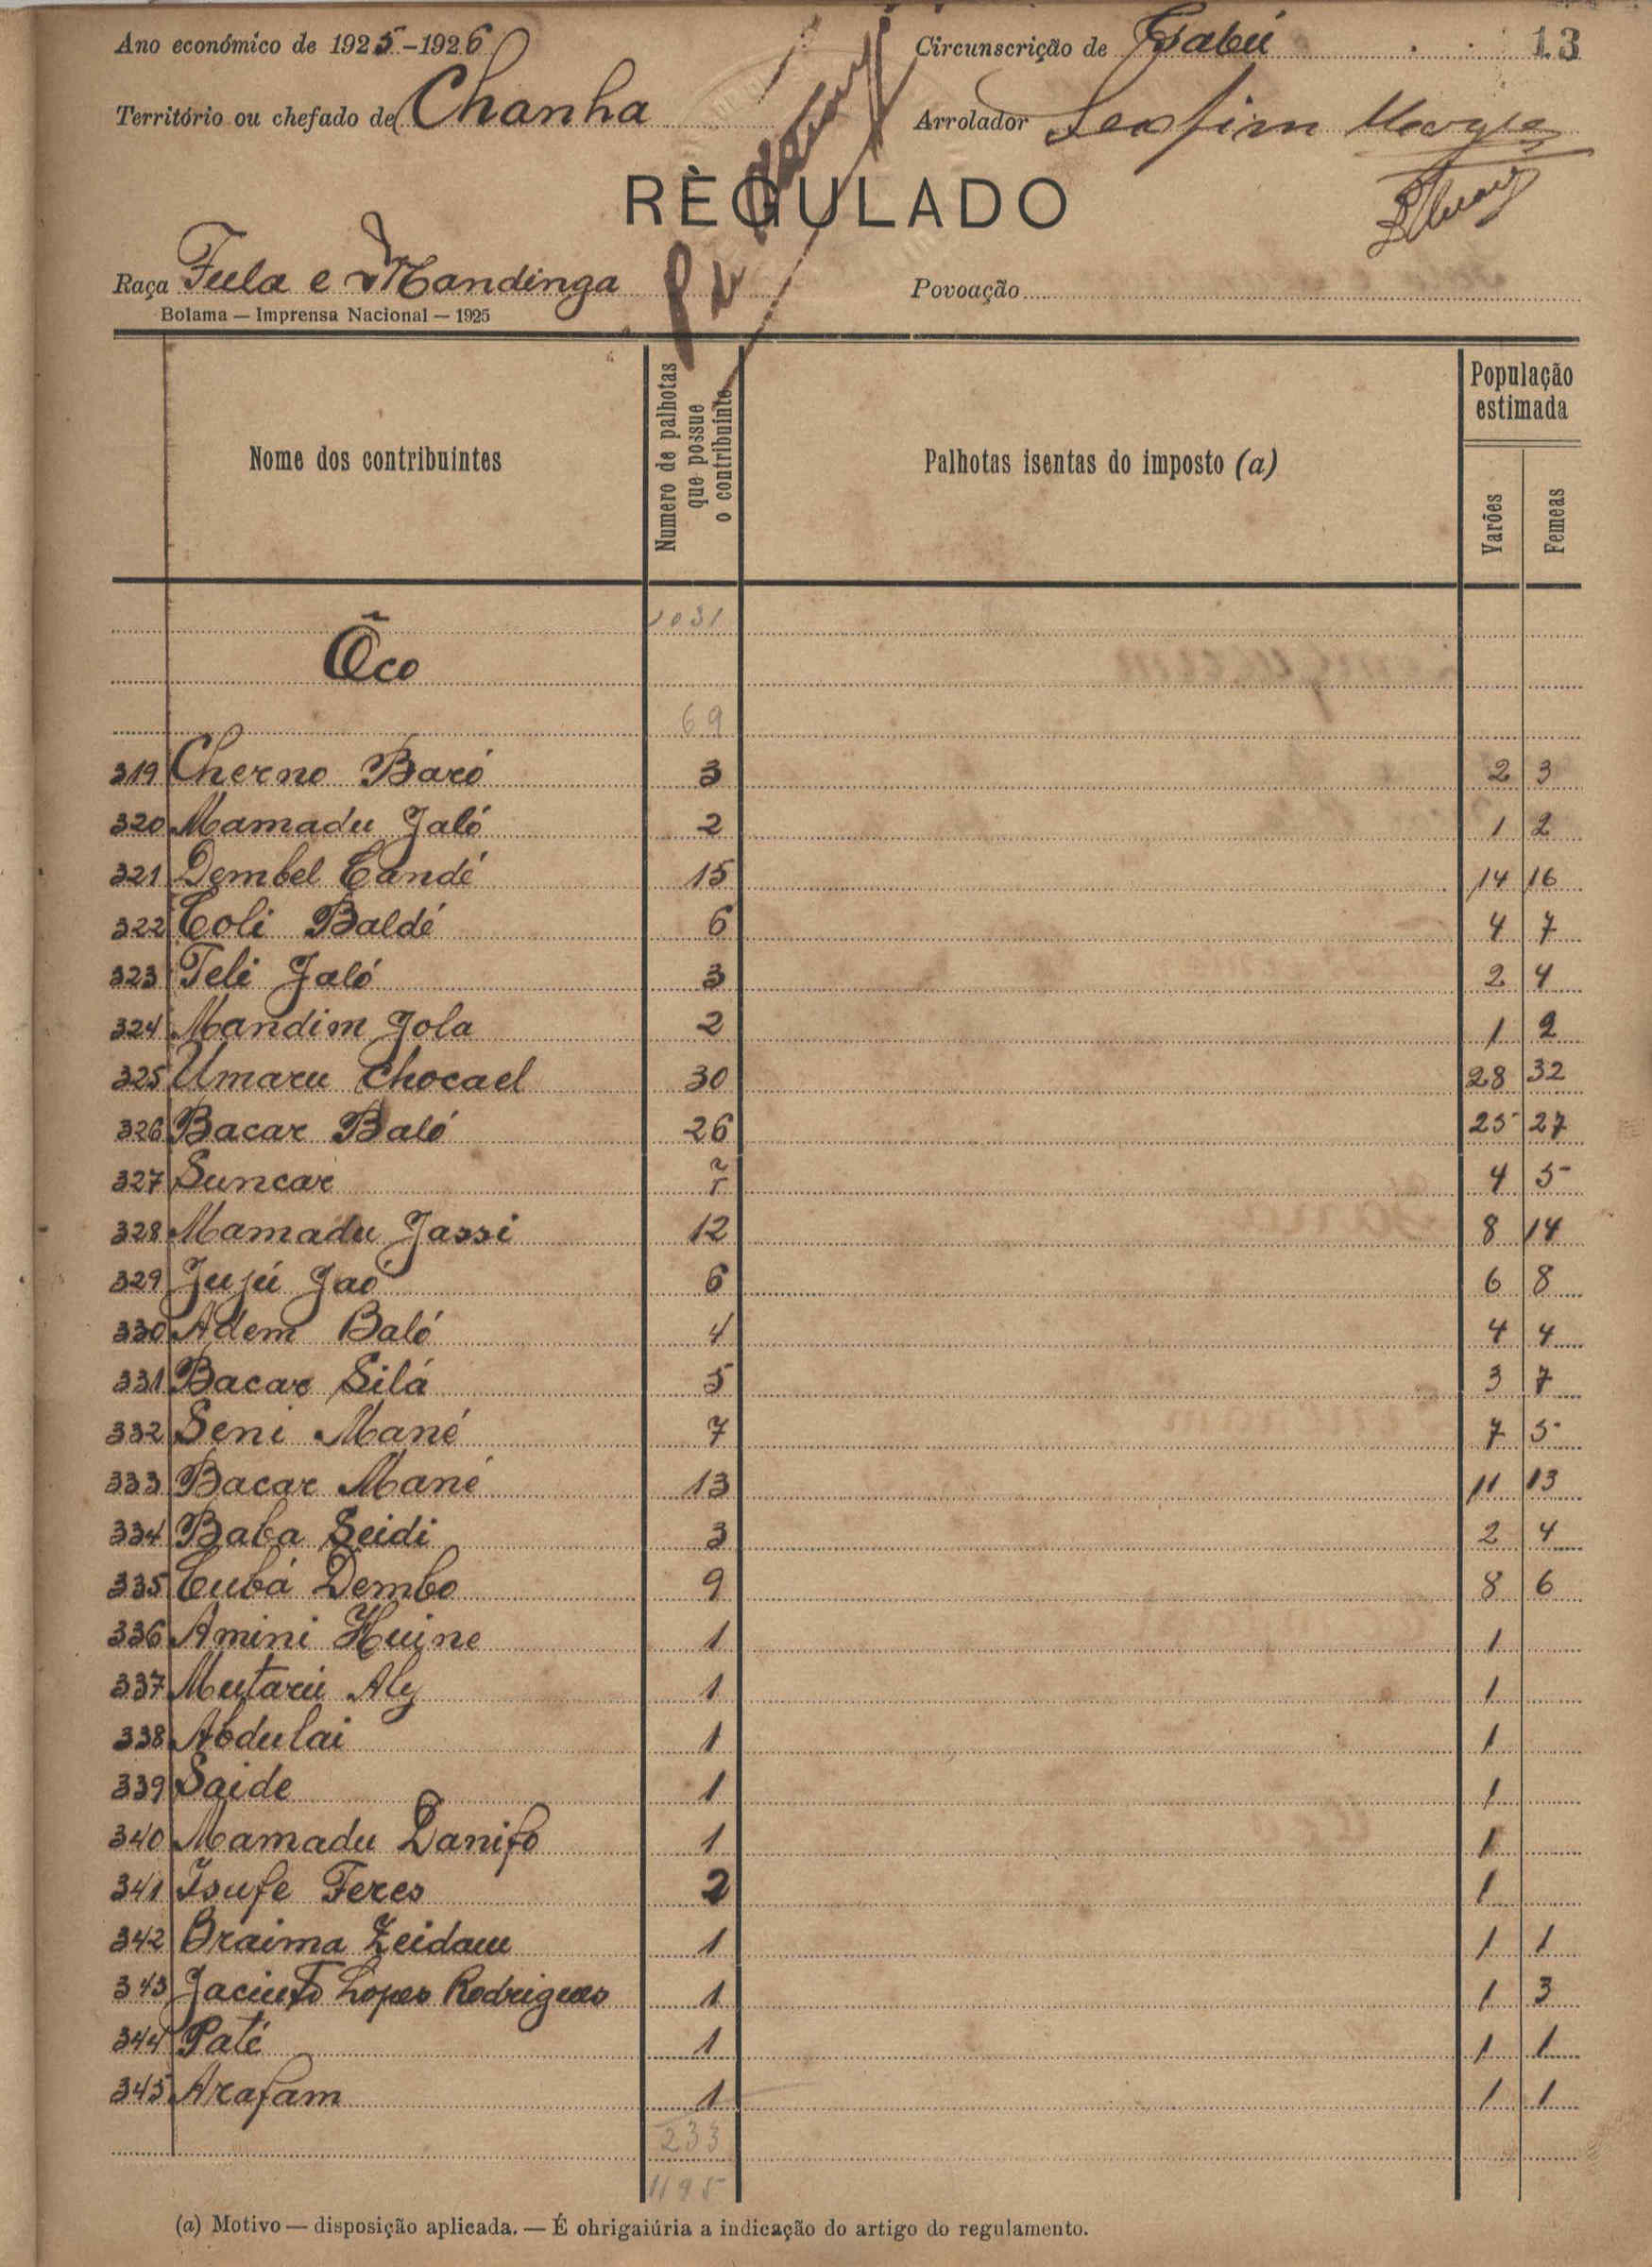 Ano económico de 1925-1926 Circunscrição de Gabú 13
Território ou chefado de Chanha Arrolador
RÈGULADO
Raça Fula e Mandinga Povoação
Bolama — Imprensa Nacional — 1925
Nome dos contribuintes Numero de palhotas que possue o contribuinte Palhotas isentas do imposto (a) População estimada Varões Femeas
1031
Õco
69
319 Cherno Baró 3 2 3
320 Mamadu Jaló 2 1 2
321 Dembel Candé 15 14 16
322 Coli Baldé 6 4 7
323 Teli Jaló 3 2 4
324 Mandim Jola 2 1 2
325 Umaru Chocael 30 28 32
326 Bacar Baló 26 25 27
327 Suncar 4 5
328 Mamadu Jassi 12 8 14
329 Jujú Jaó 6 6 8
330 Adem Baló 4 4 4
331 Bacar Silá 5 3 7
332 Seni Mané 7 7 5
333 Bacar Mané 13 11 13
334 Baba Seidi 3 2 4
335 Cubá Dembo 9 8 6
336 Amini Huine 1 1
337 Mutarú Aly 1 1
338 Abdulai 1 1
339 Saide 1 1
340 Mamadu Danifo 1 1
341 Isufe Feres 2 1
342 Braima Zeidam 1 1 1
343 Jacinto Lopes Rodrigues 1 1 3
344 Paté 1 1 1
345 Arafam 1 1 1
233
1195
(a) Motivo — disposição aplicada. — É ohrigaiúria a indicação do artigo do regulamento.